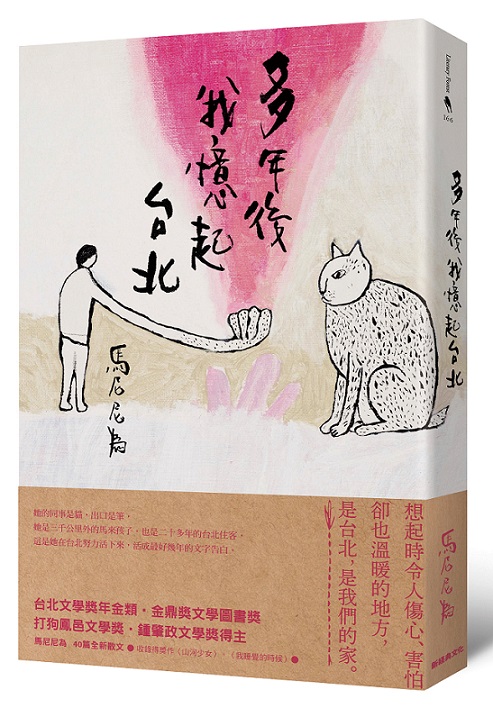 多年後
我憶起
台北
馬尼尼為
她的同事是貓,出口是筆,
她是三千公里外的馬來孩子,也是二十多年的台北住客,
這是她在台北努力活下來,活成好幾年的文字告白。
台北文學獎年金類・金鼎獎文學圖書獎
打狗鳳邑文學獎・鍾肇政文學獎得主
馬尼尼為 40篇全新散文 ● 收錄得獎作〈山河少女〉、〈我睡覺的時候〉●
想起時令人傷心、害怕
卻也溫暖的地方,
是台北,是我們的家。
Literary Forest
166
多年後我憶起台北
馬尼尼為
新經典文化